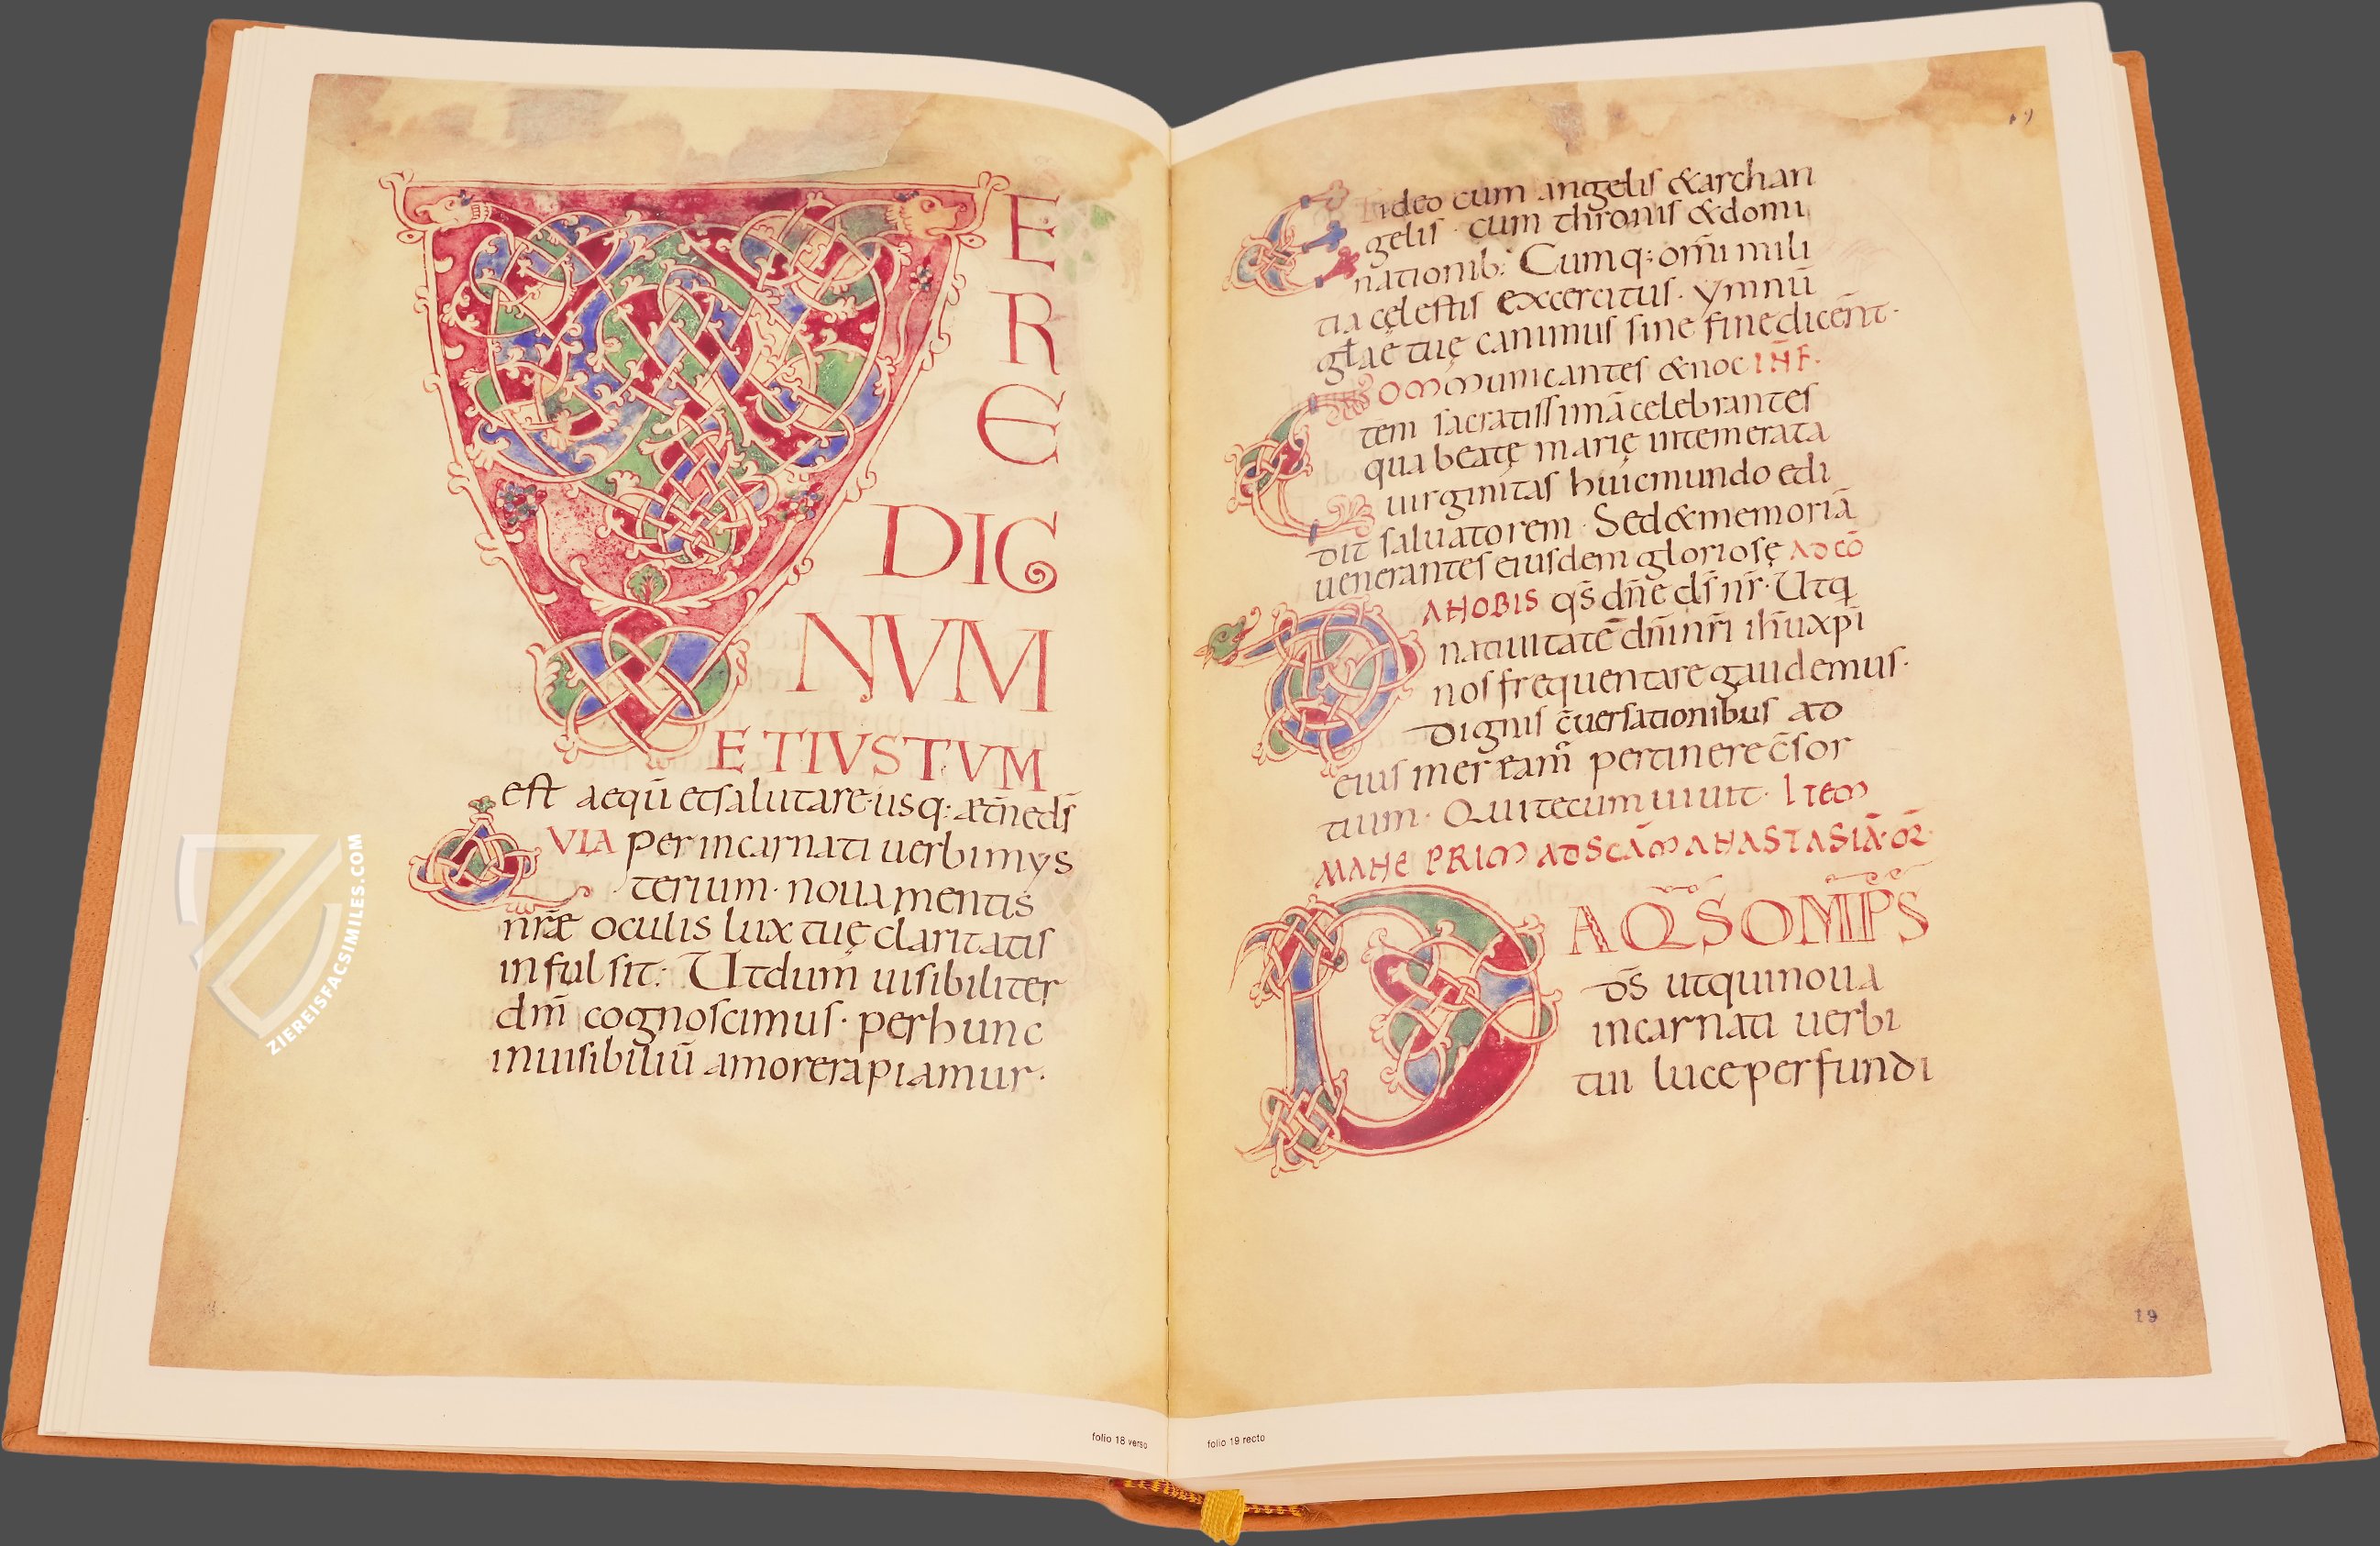 VERE
DIG
NVM
ETIVSTVM
est aequū etsalutare·usq: ætn̄eds̄
QVIA per incarnati uerbi mys
terium· noua mentis
nr̄æ oculis lux tuę claritatis
infulsit· Utdum uisibiliter
dm̄ cognoscimus· perhunc
inuisibiliū amorerapiamur·
folio 18 verso
ZIEREISFACSIMILES.COM
19
Et ideo cum angelis &archan
gelis· cum thronis &domi
nationib: Cumq: om̄i mili
tia cęlestis excercitus· ymnū
gl̄ae tuę canimus sine finedicent̄·
Communicantes &noc IN F·
tem sacratissimā celebrantes
qua beatę marię intemerata
uirginitas huicmundo edi
dit saluatorem· Sed&memoriā
uenerantes eiusdem gloriosę AD CŌ
DA NOBIS qs̄ dn̄e ds̄ nr̄· Utq
natiuitatē dn̄i nr̄i ih̄u xp̄i
nos frequentare gaudemus·
dignis c̄uersationibus ad
eius meream̄ pertinere c̄sor
tium· Qui tecum uiuit· ITEM
MANE PRIM AD SCĀM ANASTASIĀ· OR̄
DA QS OMPS
ds̄ ut qui noua
incarnati uerbi
tui luce perfundi
19
folio 19 recto